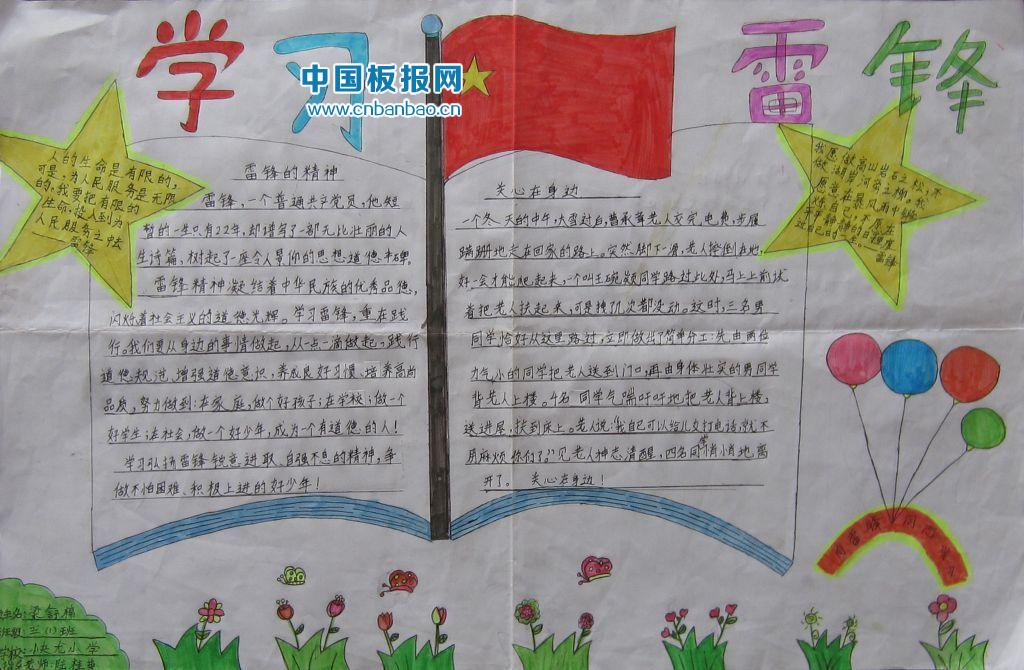 学习雷锋
中国板报网
www.cnbanbao.cn
人的生命是有限的,
可是,为人民服务是无限
的,我要把有限的
生命,投入到为
人民服务之中去
——雷锋
雷锋的精神
雷锋,一个普通共产党员,他短
暂的一生只有22年,却谱写了一部无比壮丽的人
生诗篇,树起了一座令人景仰的思想道德丰碑。
雷锋精神凝结着中华民族的优秀品德,
闪烁着社会主义的道德光辉。学习雷锋,重在践
行。我们要从身边的事情做起,从一点一滴做起,践行
道德规范,增强道德意识,养成良好习惯,培养高尚
品质,努力做到:在家庭,做个好孩子;在学校;做一个
好学生;在社会,做一个好少年,成为一个有道德的人!
学习弘扬雷锋锐意进取、自强不息的精神,争
做不怕困难、积极上进的好少年!
关心在身边
一个冬天的中午,大雪过后,曹承尊老人交完电费,步履
蹒跚地走在回家的路上。突然脚下一滑,老人摔倒在地,
好一会才能爬起来,一个叫王晓凝同学路过此处,马上上前试
着把老人扶起来,可是拽几次都没动。这时,三名男
同学恰好从这里路过,立即做出了简单分工:先由两位
力气小的同学把老人送到门口,再由身体壮实的男同学
背老人上楼。4名同学气喘吁吁地把老人背上楼,
送进屋,扶到床上。老人说:“我自己可以给儿女打电话,就不
用麻烦你们了。”见老人神志清醒,四名同学悄悄地离
开了。 关心在身边!
我愿做高山岩石之松,不
做湖岸河旁之柳。我
愿意在暴风雨中锻
炼自己,不愿在
平平静静的日子里度
过自己的一生。
——雷锋
三(1)班
小学